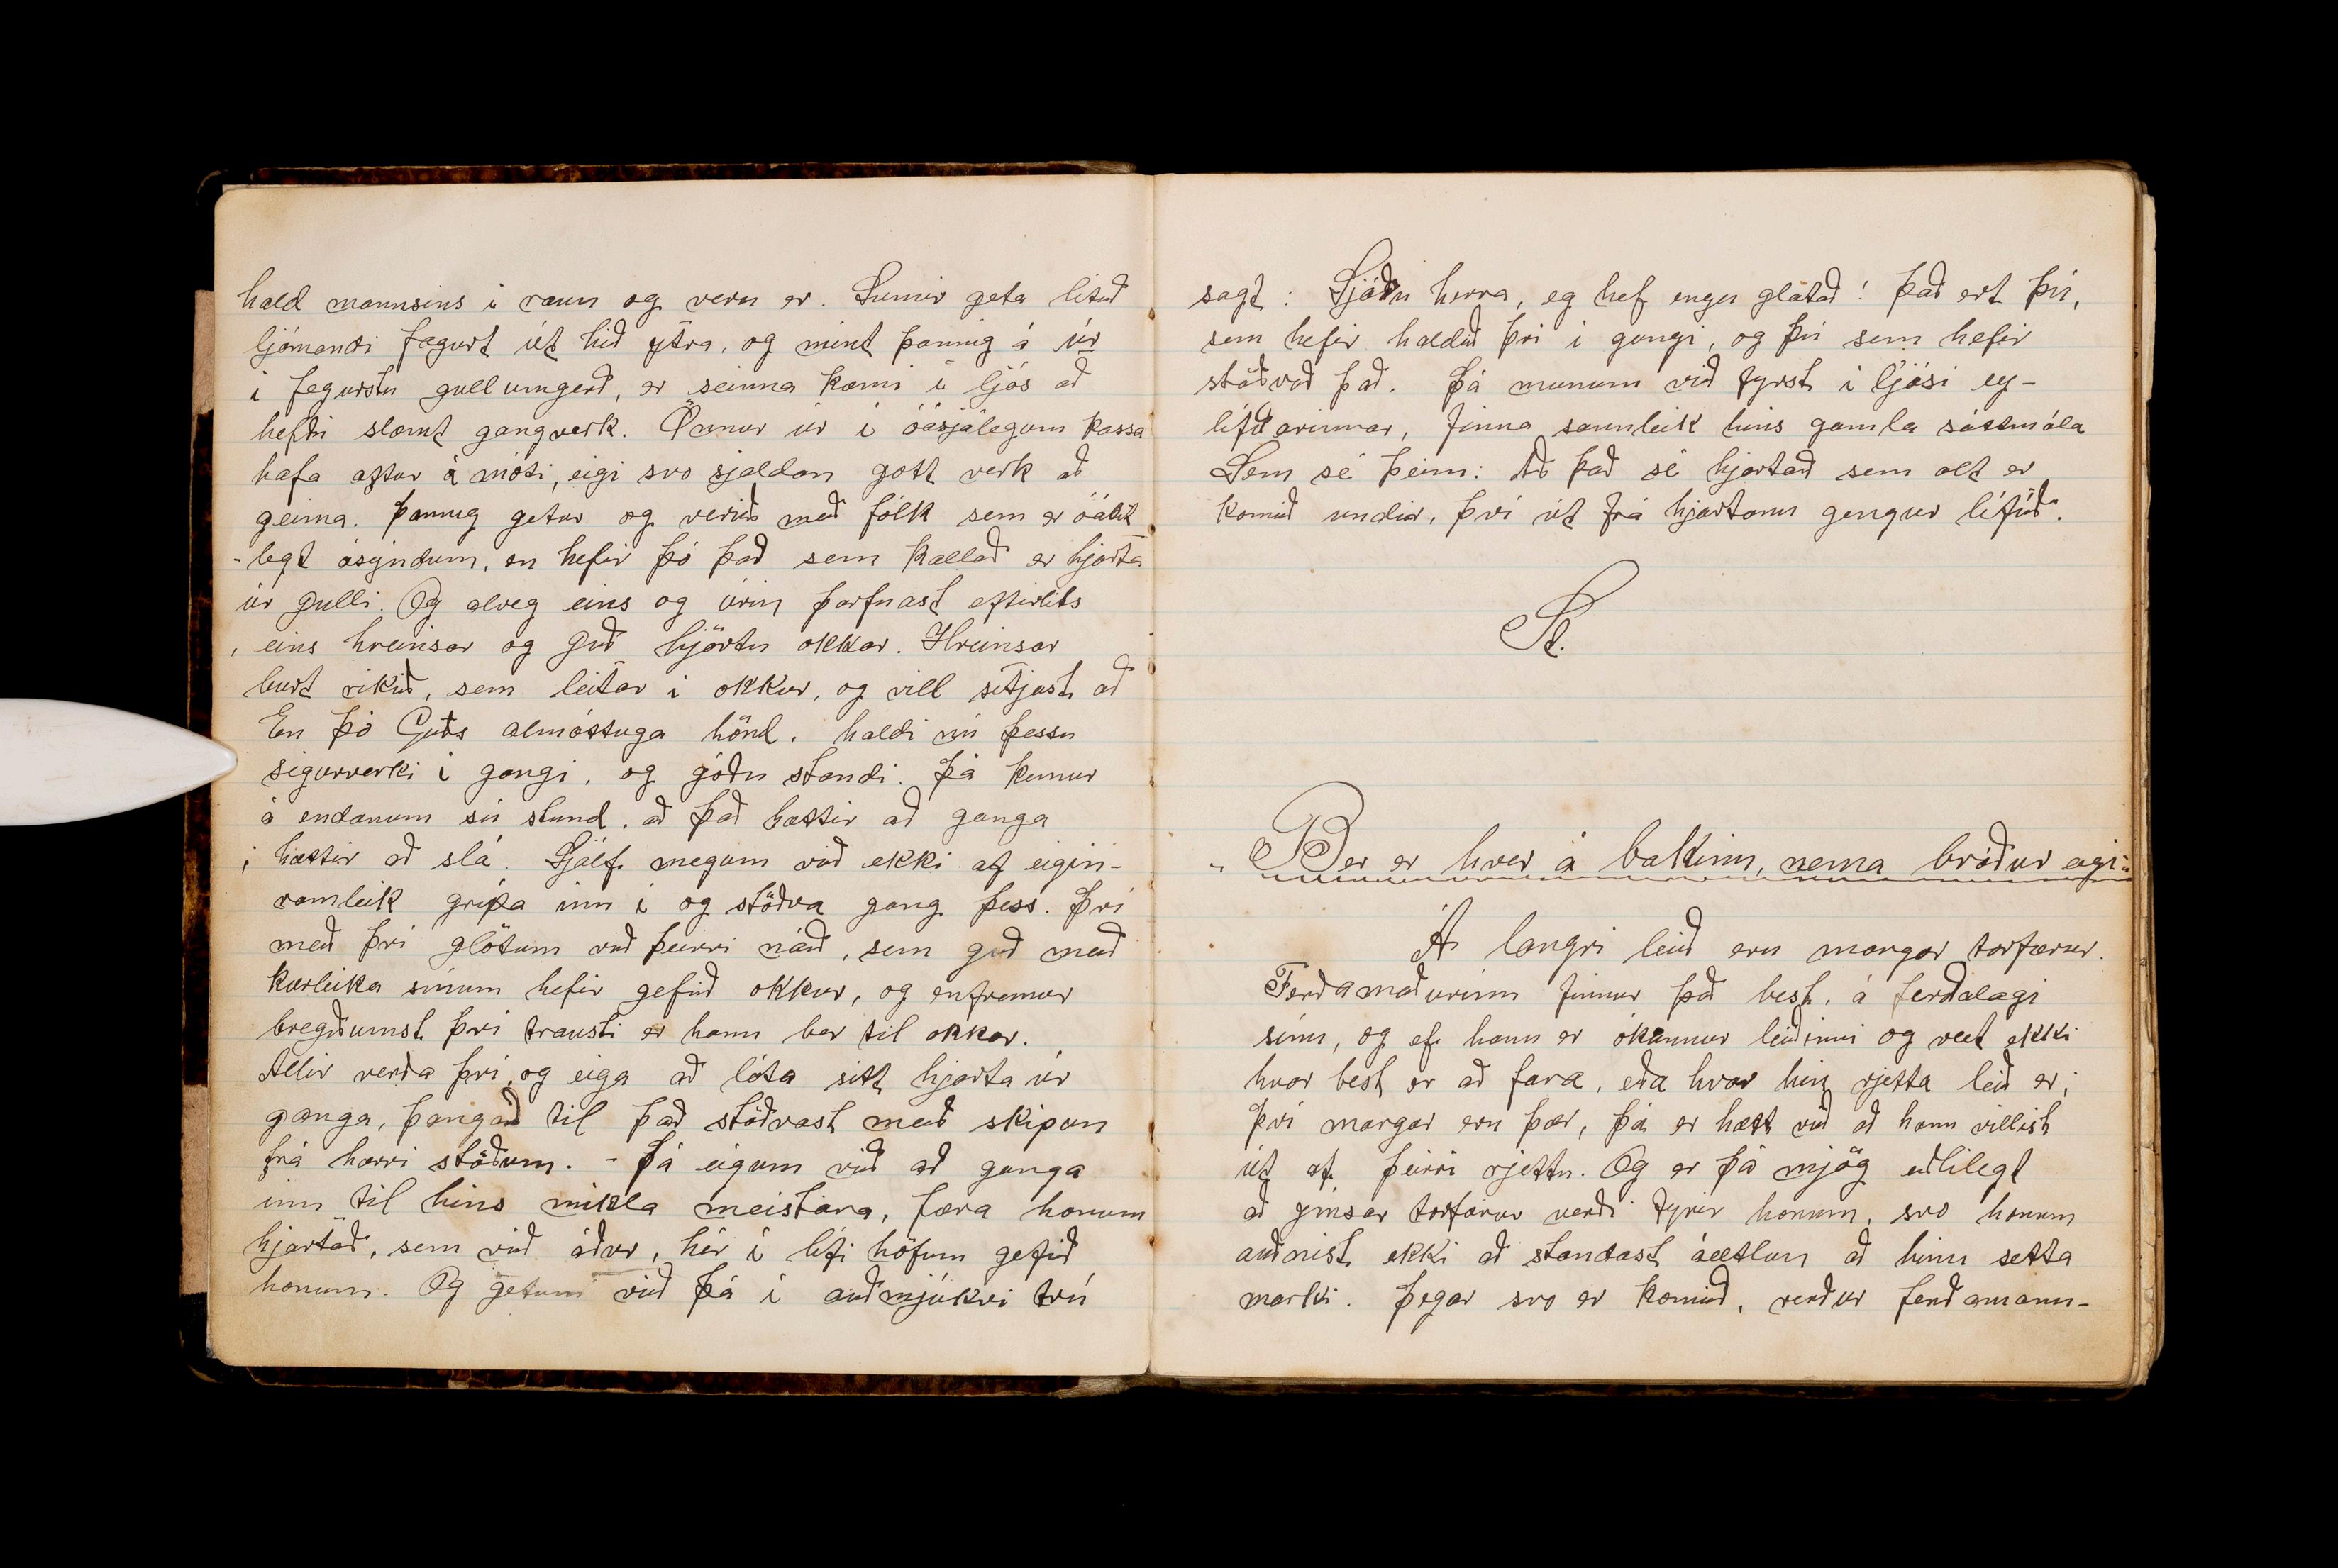 hald mannsins í raun og veru er. Sumir geta litið
ljómandi fagurt út hið ytra, og mint þannig á úr
í fegurstu gullumgerð, er seinna kæmi í ljós að
hefði slæmt gangverk. Önnur úr í óásjálegum kassa
hafa aftur á móti, eigi svo sjaldan gott verk að
geima. Þannig getur og verið með fólk sem er óálit
-legt ásýndum, en hefir þó það sem kallað er hjarta
úr gulli. Og alveg eins og úrin þarfnast eftirlits
, eins hreinsar og guð hjörtu okkar. Hreinsar
burt rikið, sem leitar í okkur, og vill setjast að
En þó Guðs almáttuga hönd, haldi nú þessu
sigurverki í gangi, og góðu standi. Þá kemur
á endanum sú stund, að það hættir að ganga
; hættir að slá. Sjálf megum við ekki af eigin-
ramleik grípa inn í og stöðva gang þess. Því
með því glötum við þeirri náð, sem guð með
kærleika sínum hefir gefið okkur, og enfremur
bregðumst því trausti er hann ber til okkar.
Allir verða því, og eiga að láta sitt hjarta úr
ganga, þangað til það stöðvast með skipun
frá hærri stöðum. - Þá eigum við að ganga
inn til hins mikla meistara, færa honum
hjartað, sem við áður, hér í lífi höfum gefið
honum. Og getum við þá í auðmjúkri trú
sagt: Sjáðu herra, eg hef engu glatað! Það ert þú,
sem hefir haldið því í gangi, og þú sem hefir
stöðvað það. Þá munum við fyrst í ljósi ey-
lífðarinnar, finna sannleik hins gamla sáttmála
Sem sé þeim: Að það sé hjartað sem alt er
komið undir, því út frá hjartanu gengur lífið".
St.
„ Ber er hver á bakinu, nema bróður eigi"
Á langri leið eru margar torfærur.
Ferðamaðurinn finnur það best, á ferðalagi
sínu, og ef hann er ókunnur leiðinni og veit ekki
hvar best er að fara, eða hvar hin rjetta leið er;
því margar eru þær, þá er hætt við að hann villist
út af þeirri rjettu. Og er þá mjög eðlilegt
að ýmsar torfærur verði fyrir honum, svo honum
auðnist ekki að standast áætlun að hinu setta
marki. Þegar svo er komið, verður ferðamann-